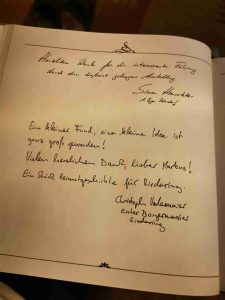 Herzlichen Dank für die interessante Führung
durch die äußerst gelungene Ausstellung
Simon
Ein kleiner Fund, eine kleine Idee ist
ganz groß geworden!
Vielen herzlichen Dank, lieber Markus!
Ein Stück Heimatgeschichte für Riedering.
Christoph Vodermaier
erster Bürgermeister
Riedering